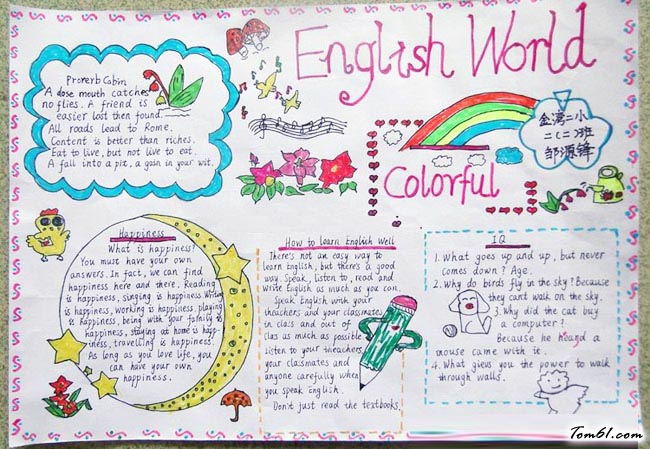 English World
Proverb Cabin
A close mouth catches
no flies. A friend is
easier lost then found.
All roads lead to Rome.
Content is better than riches.
Eat to live, but not live to eat.
A fall into a pit, a gain in your wit.
Colorful
金湾二小
二(二)班
邹源锋
Happiness
What is happiness?
You must have your own
answers. In fact, we can find
happiness here and there. Reading
is happiness, singing is happiness. Writing
is happiness, working is happiness, playing
is happiness, being with your family is
happiness, staying at home is happ-
iness, travelling is happiness.
As long as you love life, you
can have your own
happiness.
How to learn English Well
There's not an easy way to
learn English, but there's a good
way. Speak, listen to, read and
write English as much as you can.
Speak English with your
theachers and your classmates
in class and out of
clas as much as possible
listen to your theachers
your classmates and
anyone carefully when
you speak English.
Don't just read the textbooks.
IQ
1. What goes up and up, but never
comes down? Age.
2. Why do birds fly in the sky? Because
they can't walk on the sky.
3. Why did the cat buy
a computer?
Because he heard a
mouse came with it.
4. What gives you the power to walk
through walls.
Tom61.com